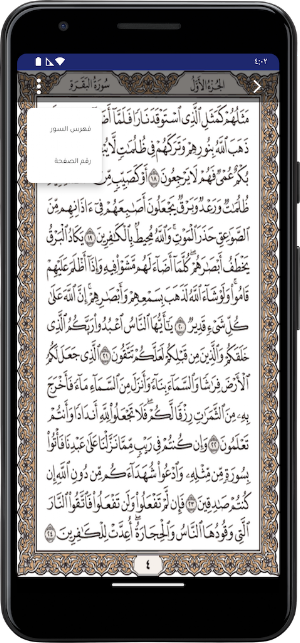 ٤:٠٢
الجُزءُ الأوَّل
سُورَةُ البَقَرَة
فهرس السور
رقم الصفحة
مَثَلُهُمْ كَمَثَلِ ٱلَّذِى ٱسْتَوْقَدَ نَارًا فَلَمَّآ
ذَهَبَ ٱللَّهُ بِنُورِهِمْ وَتَرَكَهُمْ فِى ظُلُمَٰتٍ لَّا
بُكْمٌ عُمْىٌ فَهُمْ لَا يَرْجِعُونَ ١٨ أَوْ كَصَيِّبٍ
ظُلُمَٰتٌ وَرَعْدٌ وَبَرْقٌ يَجْعَلُونَ أَصَٰبِعَهُمْ فِىٓ ءَاذَانِهِم مِّنَ
ٱلصَّوَٰعِقِ حَذَرَ ٱلْمَوْتِ ۚ وَٱللَّهُ مُحِيطٌۢ بِٱلْكَٰفِرِينَ ١٩ يَكَادُ ٱلْبَرْقُ
يَخْطَفُ أَبْصَٰرَهُمْ ۖ كُلَّمَآ أَضَآءَ لَهُم مَّشَوْا۟ فِيهِ وَإِذَآ أَظْلَمَ عَلَيْهِمْ
قَامُوا۟ ۚ وَلَوْ شَآءَ ٱللَّهُ لَذَهَبَ بِسَمْعِهِمْ وَأَبْصَٰرِهِمْ ۚ إِنَّ ٱللَّهَ عَلَىٰ
كُلِّ شَىْءٍ قَدِيرٌ ٢٠ يَٰٓأَيُّهَا ٱلنَّاسُ ٱعْبُدُوا۟ رَبَّكُمُ ٱلَّذِى
خَلَقَكُمْ وَٱلَّذِينَ مِن قَبْلِكُمْ لَعَلَّكُمْ تَتَّقُونَ ٢١ ٱلَّذِى جَعَلَ لَكُمُ
ٱلْأَرْضَ فِرَٰشًا وَٱلسَّمَآءَ بِنَآءً وَأَنزَلَ مِنَ ٱلسَّمَآءِ مَآءً فَأَخْرَجَ
بِهِۦ مِنَ ٱلثَّمَرَٰتِ رِزْقًا لَّكُمْ ۖ فَلَا تَجْعَلُوا۟ لِلَّهِ أَندَادًا وَأَنتُمْ
تَعْلَمُونَ ٢٢ وَإِن كُنتُمْ فِى رَيْبٍ مِّمَّا نَزَّلْنَا عَلَىٰ عَبْدِنَا فَأْتُوا۟
بِسُورَةٍ مِّن مِّثْلِهِۦ وَٱدْعُوا۟ شُهَدَآءَكُم مِّن دُونِ ٱللَّهِ إِن
كُنتُمْ صَٰدِقِينَ ٢٣ فَإِن لَّمْ تَفْعَلُوا۟ وَلَن تَفْعَلُوا۟ فَٱتَّقُوا۟ ٱلنَّارَ
ٱلَّتِى وَقُودُهَا ٱلنَّاسُ وَٱلْحِجَارَةُ ۖ أُعِدَّتْ لِلْكَٰفِرِينَ ٢٤
٤